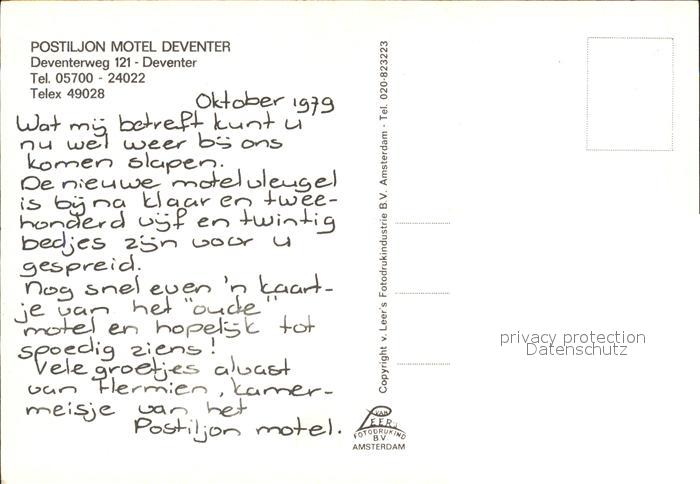 POSTILJON MOTEL DEVENTER
Deventerweg 121 - Deventer
Tel. 05700 - 24022
Telex 49028
Oktober 1979
Wat mij betreft kunt u
nu wel weer bij ons
komen slapen.
De nieuwe motelvleugel
is bijna klaar en twee-
honderd vijf en twintig
bedjes zijn voor u
gespreid.
Nog snel even 'n kaart-
je van het "oude"
motel en hopelijk tot
spoedig ziens!
Vele groetjes alvast
van Hermien, kamer-
meisje van het
Postiljon motel.
Copyright v. Leer's Fotodrukindustrie B.V. Amsterdam - Tel. 020-823223
VAN
LEER'S
FOTODRUKIND
B.V.
AMSTERDAM
privacy protection
Datenschutz